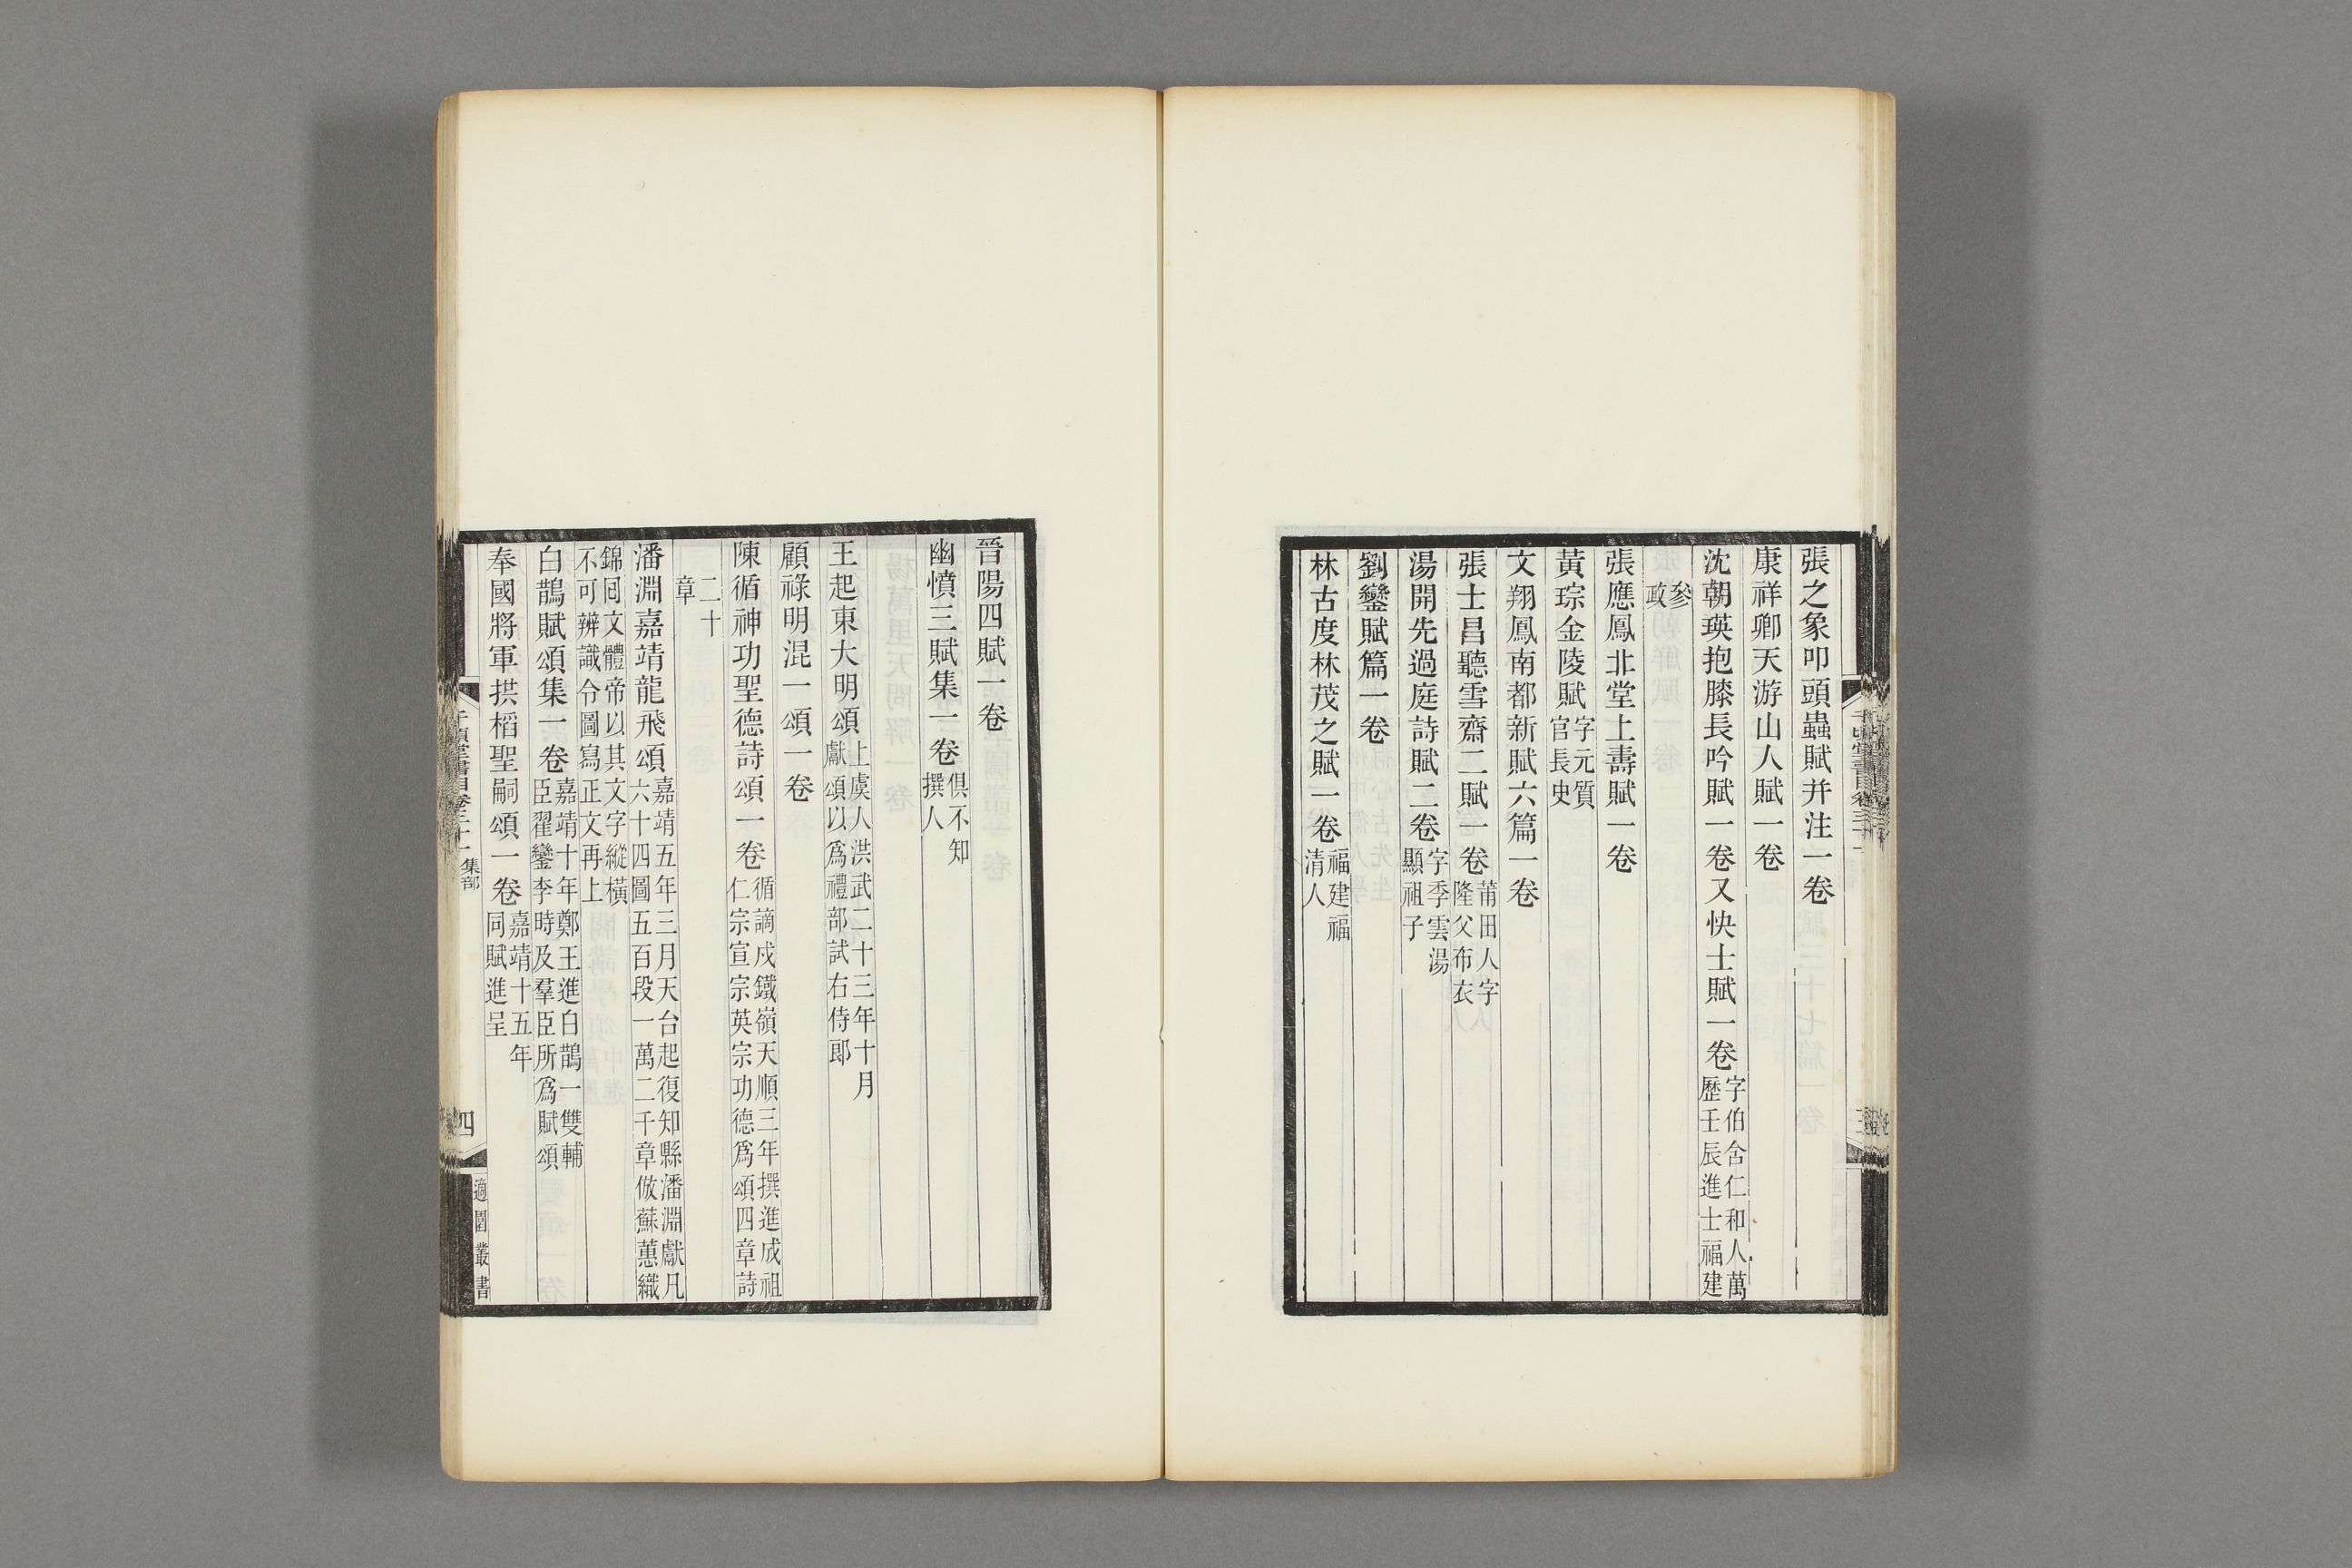 張之象叩頭蟲賦并注一卷
康祥卿天游山人賦一卷
沈朝瑛抱膝長吟賦一卷又快士賦一卷字伯含仁和人萬
歷壬辰進士福建
參
政
張應鳳北堂上壽賦一卷
黃琮金陵賦字元質
官長史
文翔鳳南都新賦六篇一卷
張士昌聽雪齋二賦一卷莆田人字
隆父布衣
湯開先過庭詩賦二卷字季雲湯
顯祖子
劉鑾賦篇一卷
林古度林茂之賦一卷福建福
清人
晉陽四賦一卷
幽憤三賦集一卷俱不知
撰人
王起東大明頌上虞人洪武二十三年十月
獻頌以爲禮部試右侍郎
顧祿明混一頌一卷
陳循神功聖德詩頌一卷循謫戍鐵嶺天順三年撰進成祖
仁宗宣宗英宗功德爲頌四章詩
二十
章
潘淵嘉靖龍飛頌嘉靖五年三月天台起復知縣潘淵獻凡
六十四圖五百段一萬二千章倣蘇蕙織
錦囘文體帝以其文字縱橫
不可辨識令圖寫正文再上
白鵲賦頌集一卷嘉靖十年鄭王進白鵲一雙輔
臣翟鑾李時及羣臣所爲賦頌
奉國將軍拱榣聖嗣頌一卷嘉靖十五年
同賦進呈
千頃堂書目卷三十一 集部
四
適園叢書